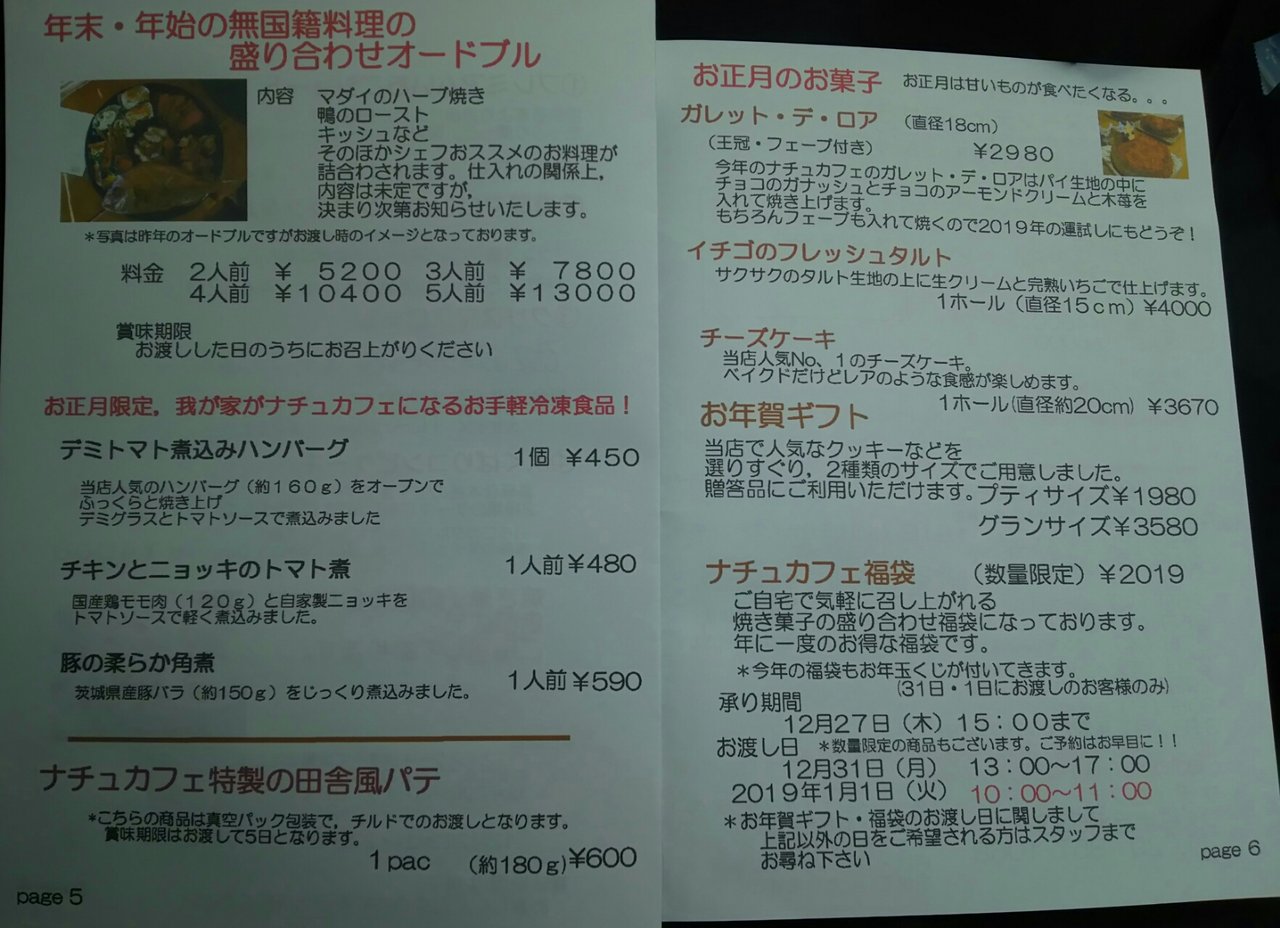 年末・年始の無国籍料理の
盛り合わせオードブル
内容 マダイのハーブ焼き
鴨のロースト
キッシュなど
そのほかシェフおススメのお料理が
詰合わされます。仕入れの関係上，
内容は未定ですが，
決まり次第お知らせいたします。
＊写真は昨年のオードブルですがお渡し時のイメージとなっております。
料金 2人前 ￥ 5200 3人前 ￥ 7800
4人前 ￥10400 5人前 ￥13000
賞味期限
お渡しした日のうちにお召上がりください
お正月限定，我が家がナチュカフェになるお手軽冷凍食品！
デミトマト煮込みハンバーグ 1個 ￥450
当店人気のハンバーグ（約160ｇ）をオーブンで
ふっくらと焼き上げ
デミグラスとトマトソースで煮込みました
チキンとニョッキのトマト煮 1人前￥480
国産鶏モモ肉（120ｇ）と自家製ニョッキを
トマトソースで軽く煮込みました。
豚の柔らか角煮 1人前￥590
茨城県産豚バラ（約150ｇ）をじっくり煮込みました。
ナチュカフェ特製の田舎風パテ
＊こちらの商品は真空パック包装で，チルドでのお渡しとなります。
賞味期限はお渡しして5日となります。
1pac （約180ｇ)￥600
page 5
お正月のお菓子 お正月は甘いものが食べたくなる。。。
ガレット・デ・ロア （直径18cm）
（王冠・フェーブ付き） ￥2980
今年のナチュカフェのガレット・デ・ロアはパイ生地の中に
チョコのガナッシュとチョコのアーモンドクリームと木苺を
入れて焼き上げます。
もちろんフェーブも入れて焼くので2019年の運試しにもどうぞ！
イチゴのフレッシュタルト
サクサクのタルト生地の上に生クリームと完熟いちごで仕上げます。
1ホール（直径15ｃｍ）￥4000
チーズケーキ
当店人気No、1のチーズケーキ。
ベイクドだけどレアのような食感が楽しめます。
1ホール(直径約20cm) ￥3670
お年賀ギフト
当店で人気なクッキーなどを
選りすぐり，2種類のサイズでご用意しました。
贈答品にご利用いただけます。プティサイズ￥1980
グランサイズ￥3580
ナチュカフェ福袋 （数量限定）￥2019
ご自宅で気軽に召し上がれる
焼き菓子の盛り合わせ福袋になっております。
年に一度のお得な福袋です。
＊今年の福袋もお年玉くじが付いてきます。
(31日・1日にお渡しのお客様のみ)
承り期間
12月27日（木）15：00まで
お渡し日 ＊数量限定の商品もございます。ご予約はお早目に！！
12月31日（月） 13：00～17：00
2019年1月1日（火） 10：00～11：00
＊お年賀ギフト・福袋のお渡し日に関しまして
上記以外の日をご希望される方はスタッフまで
お尋ね下さい
page 6